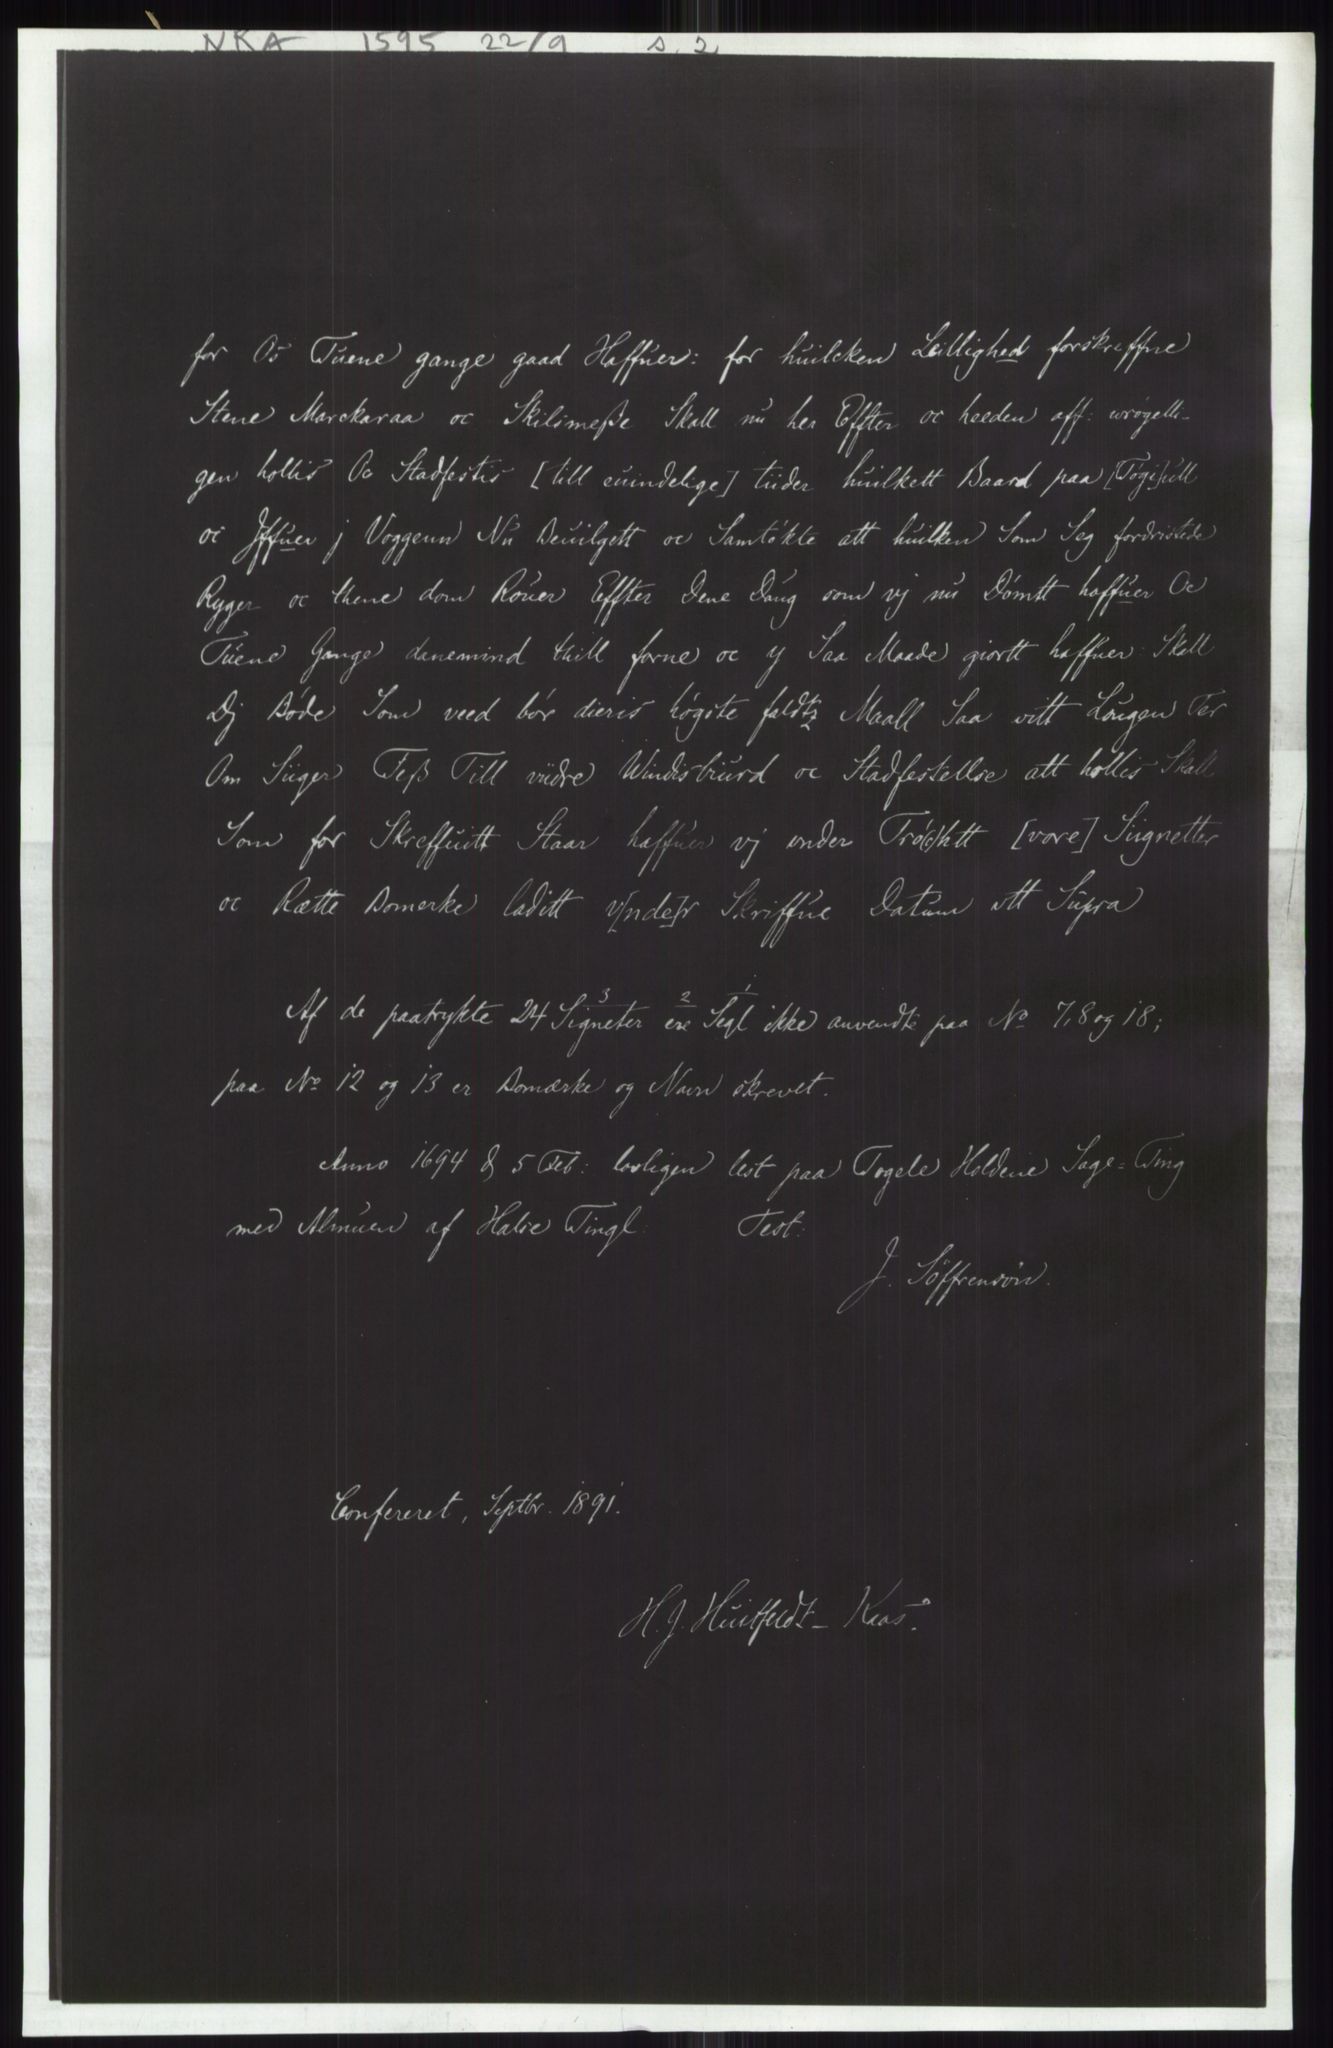 NRA 1595 22/9 s. 2
for Os Tuene gange gaad Haffuer: for huilcken Leillighed forskreffne
Stene Marckaraa oc Skilsmeße Skall nu her Effter oc heeden aff: urøgelli-
gen hollis Oc Stadfestis [till euindelige] tiider huilkett Baard paa [Togi]ull
oc Jffuer j Voggenn Nu Beuilgett oc Samtøkte att huilken Som Seg fordristede
Ryger oc thene dom Róuer Effter Dene Daug som vj nu Dömtt haffuer Oc
Tuene Gange danemind thill forne oc y Saa Maade giortt haffuer: Skall
Dj Bøde Som veed bör dieris høgste faldtz Maall Saa vitt Lougen Ter
Om Siiger Teß Till viidre Windisbiurd oc Stadfestellse att hollis Skall
Som for Skreffuitt Staar haffuer vj under Trö(c)htt [vore] Siignetter
oc Rætte Bomerke laditt v[nde]r Skriffue Datum utt Supra
Af de paatrykte 24 Signeter 3 ere 2 Segl 1 ikke anvendte paa No 7, 8 og 18;
paa No 12 og 13 er Bomærke og Navn skrevet.
Anno 1694 d 5 Feb: lovligen lest paa Togele Holdene Sage-Ting
med Almuen af Halse Tingl. Test:
J. Söffrensön.
Confereret, Septbr. 1891.
H. J. Huitfeldt-Kaas.